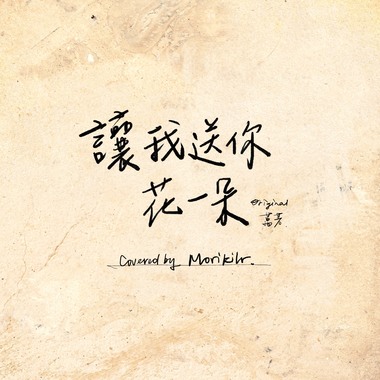 讓我送你
花一朵
Original
Covered by Morikilr.